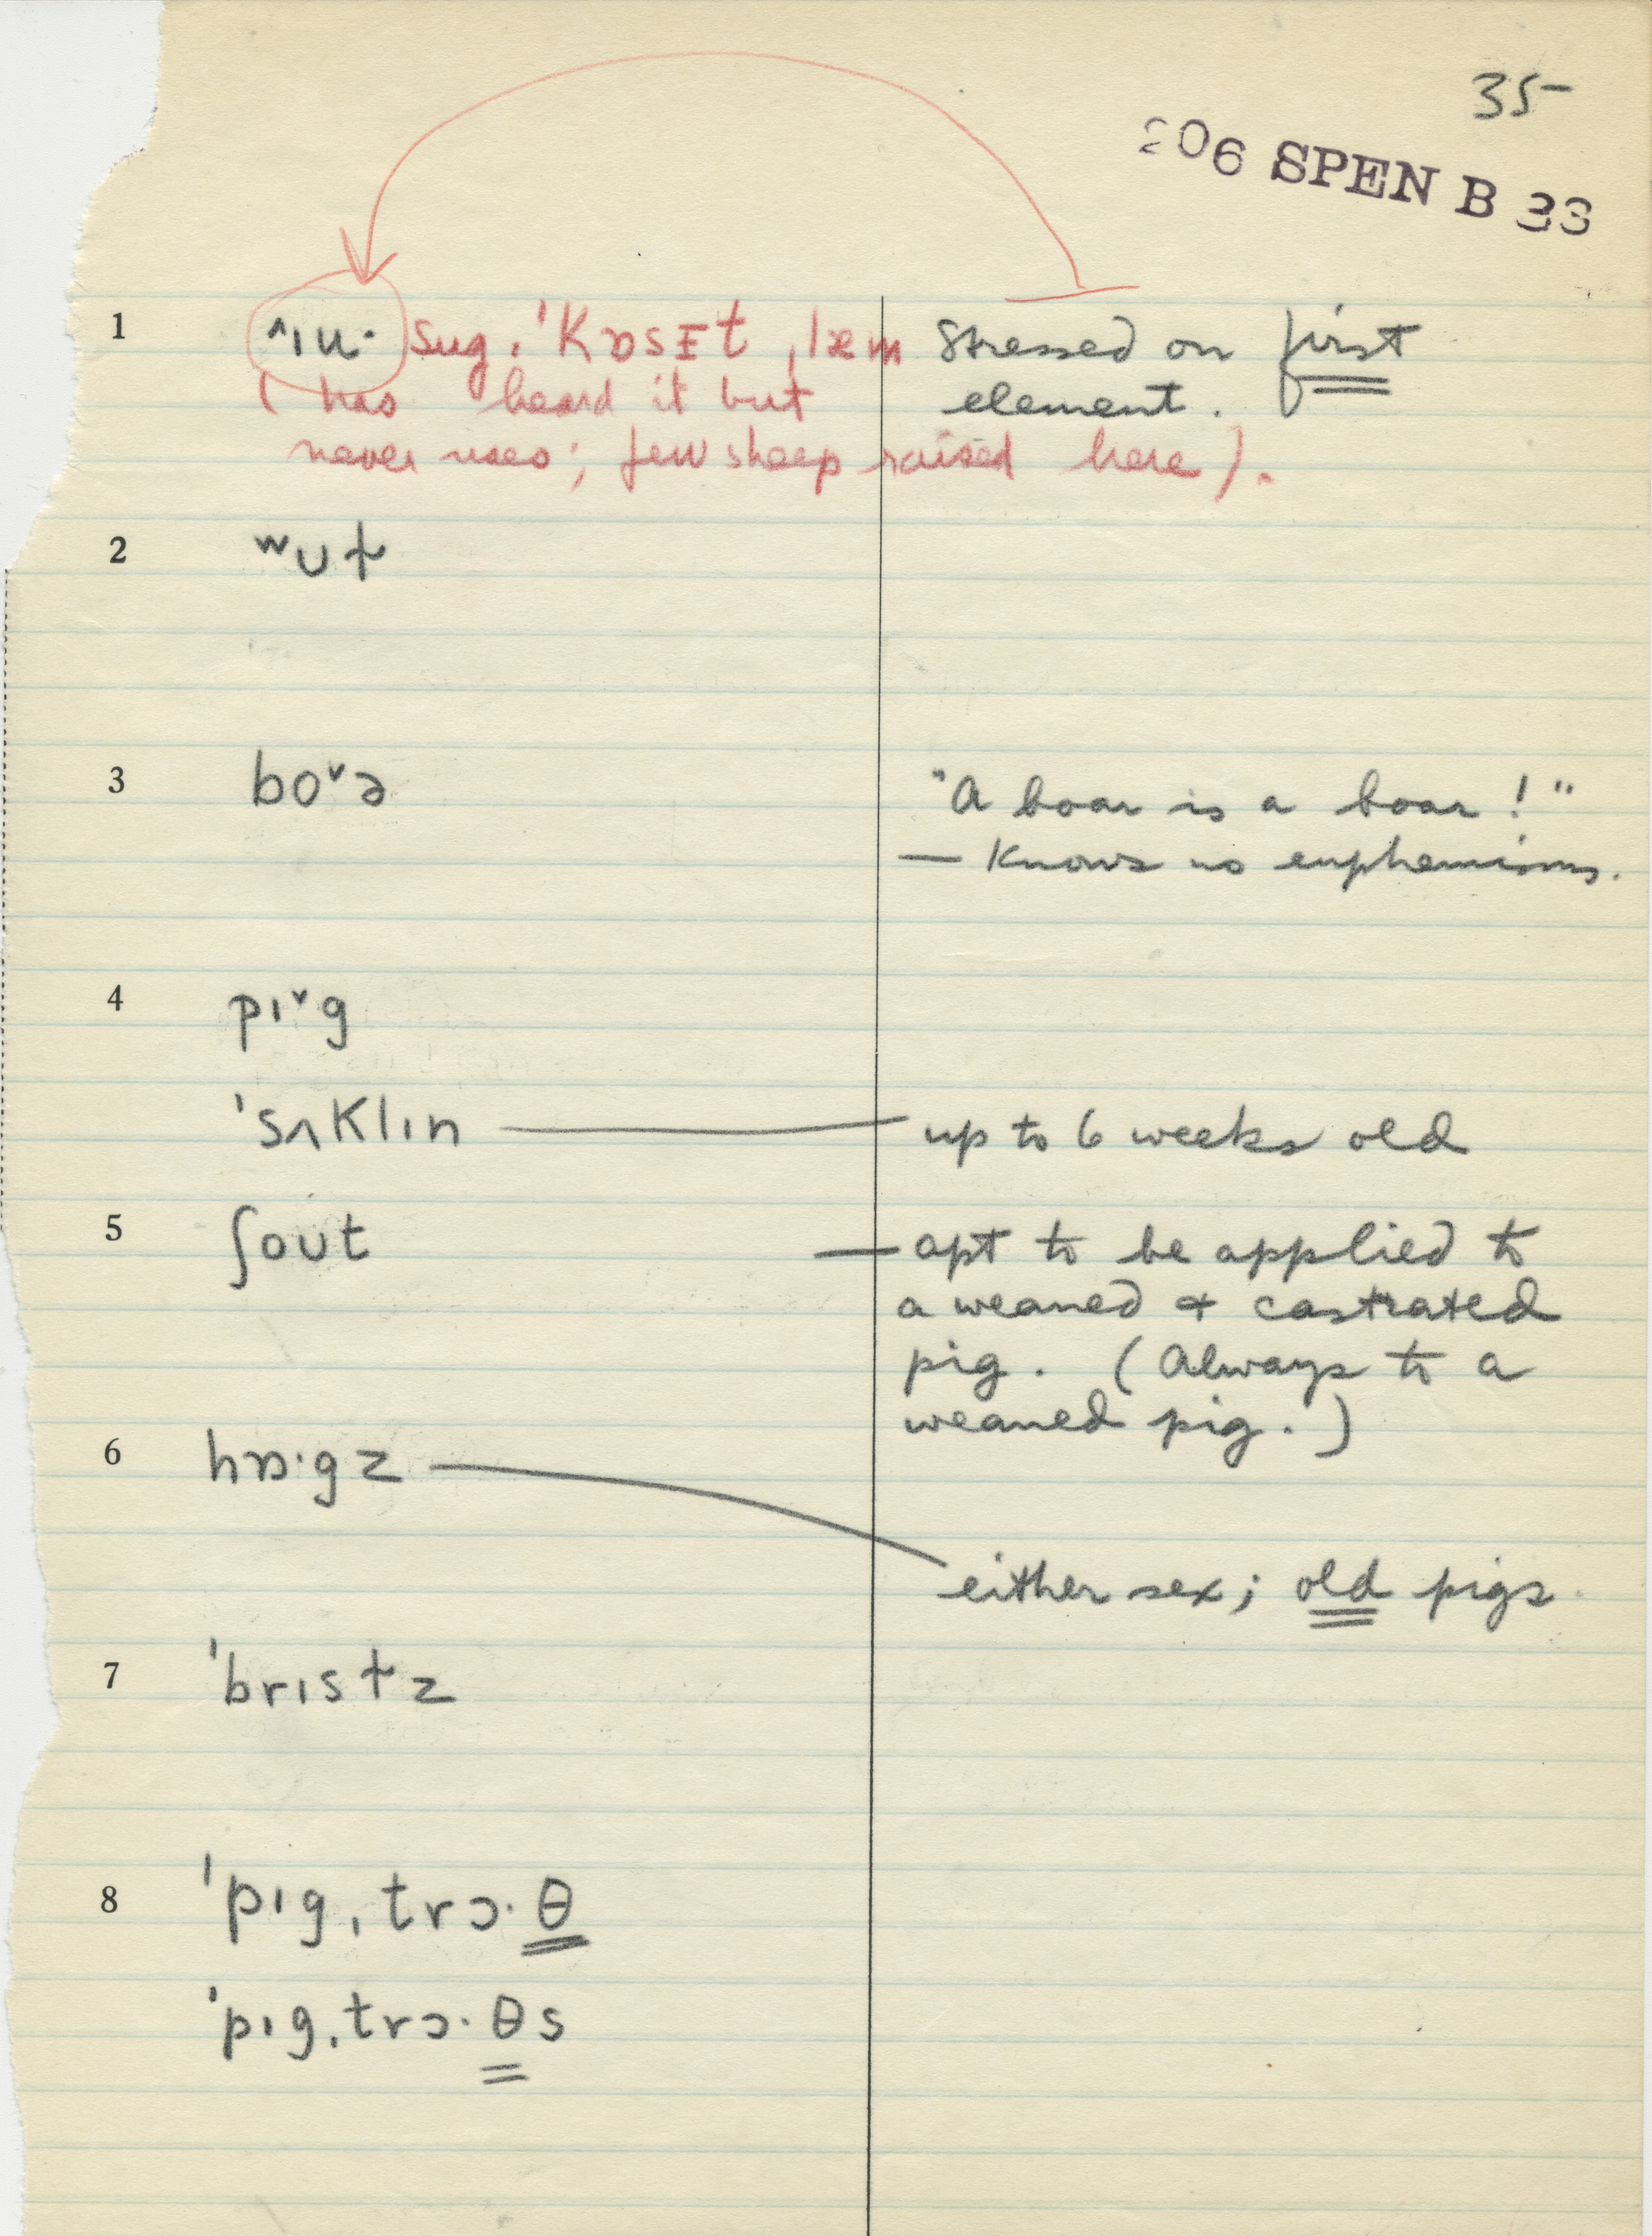 35
206 SPEN B 33
1 ˄ɪu· sug. 'kɒsᵻt ˌlæm Stressed on first
(has heard it but element.
never uses; few sheep raised here).
2 ʷʊɫ
3 bo˅ə "A boar is a boar!"
— Knows no euphemisms.
4 pɪ˅g
'sʌklɪn — up to 6 weeks old
5 ʃoʊt — apt to be applied to
a weaned & castrated
pig. (Always to a
weaned pig.)
6 hɒ·gz —
either sex; old pigs.
7 'brɪsɫz
8 'pɪgˌtrɔ·θ
'pɪgˌtrɔ·θs